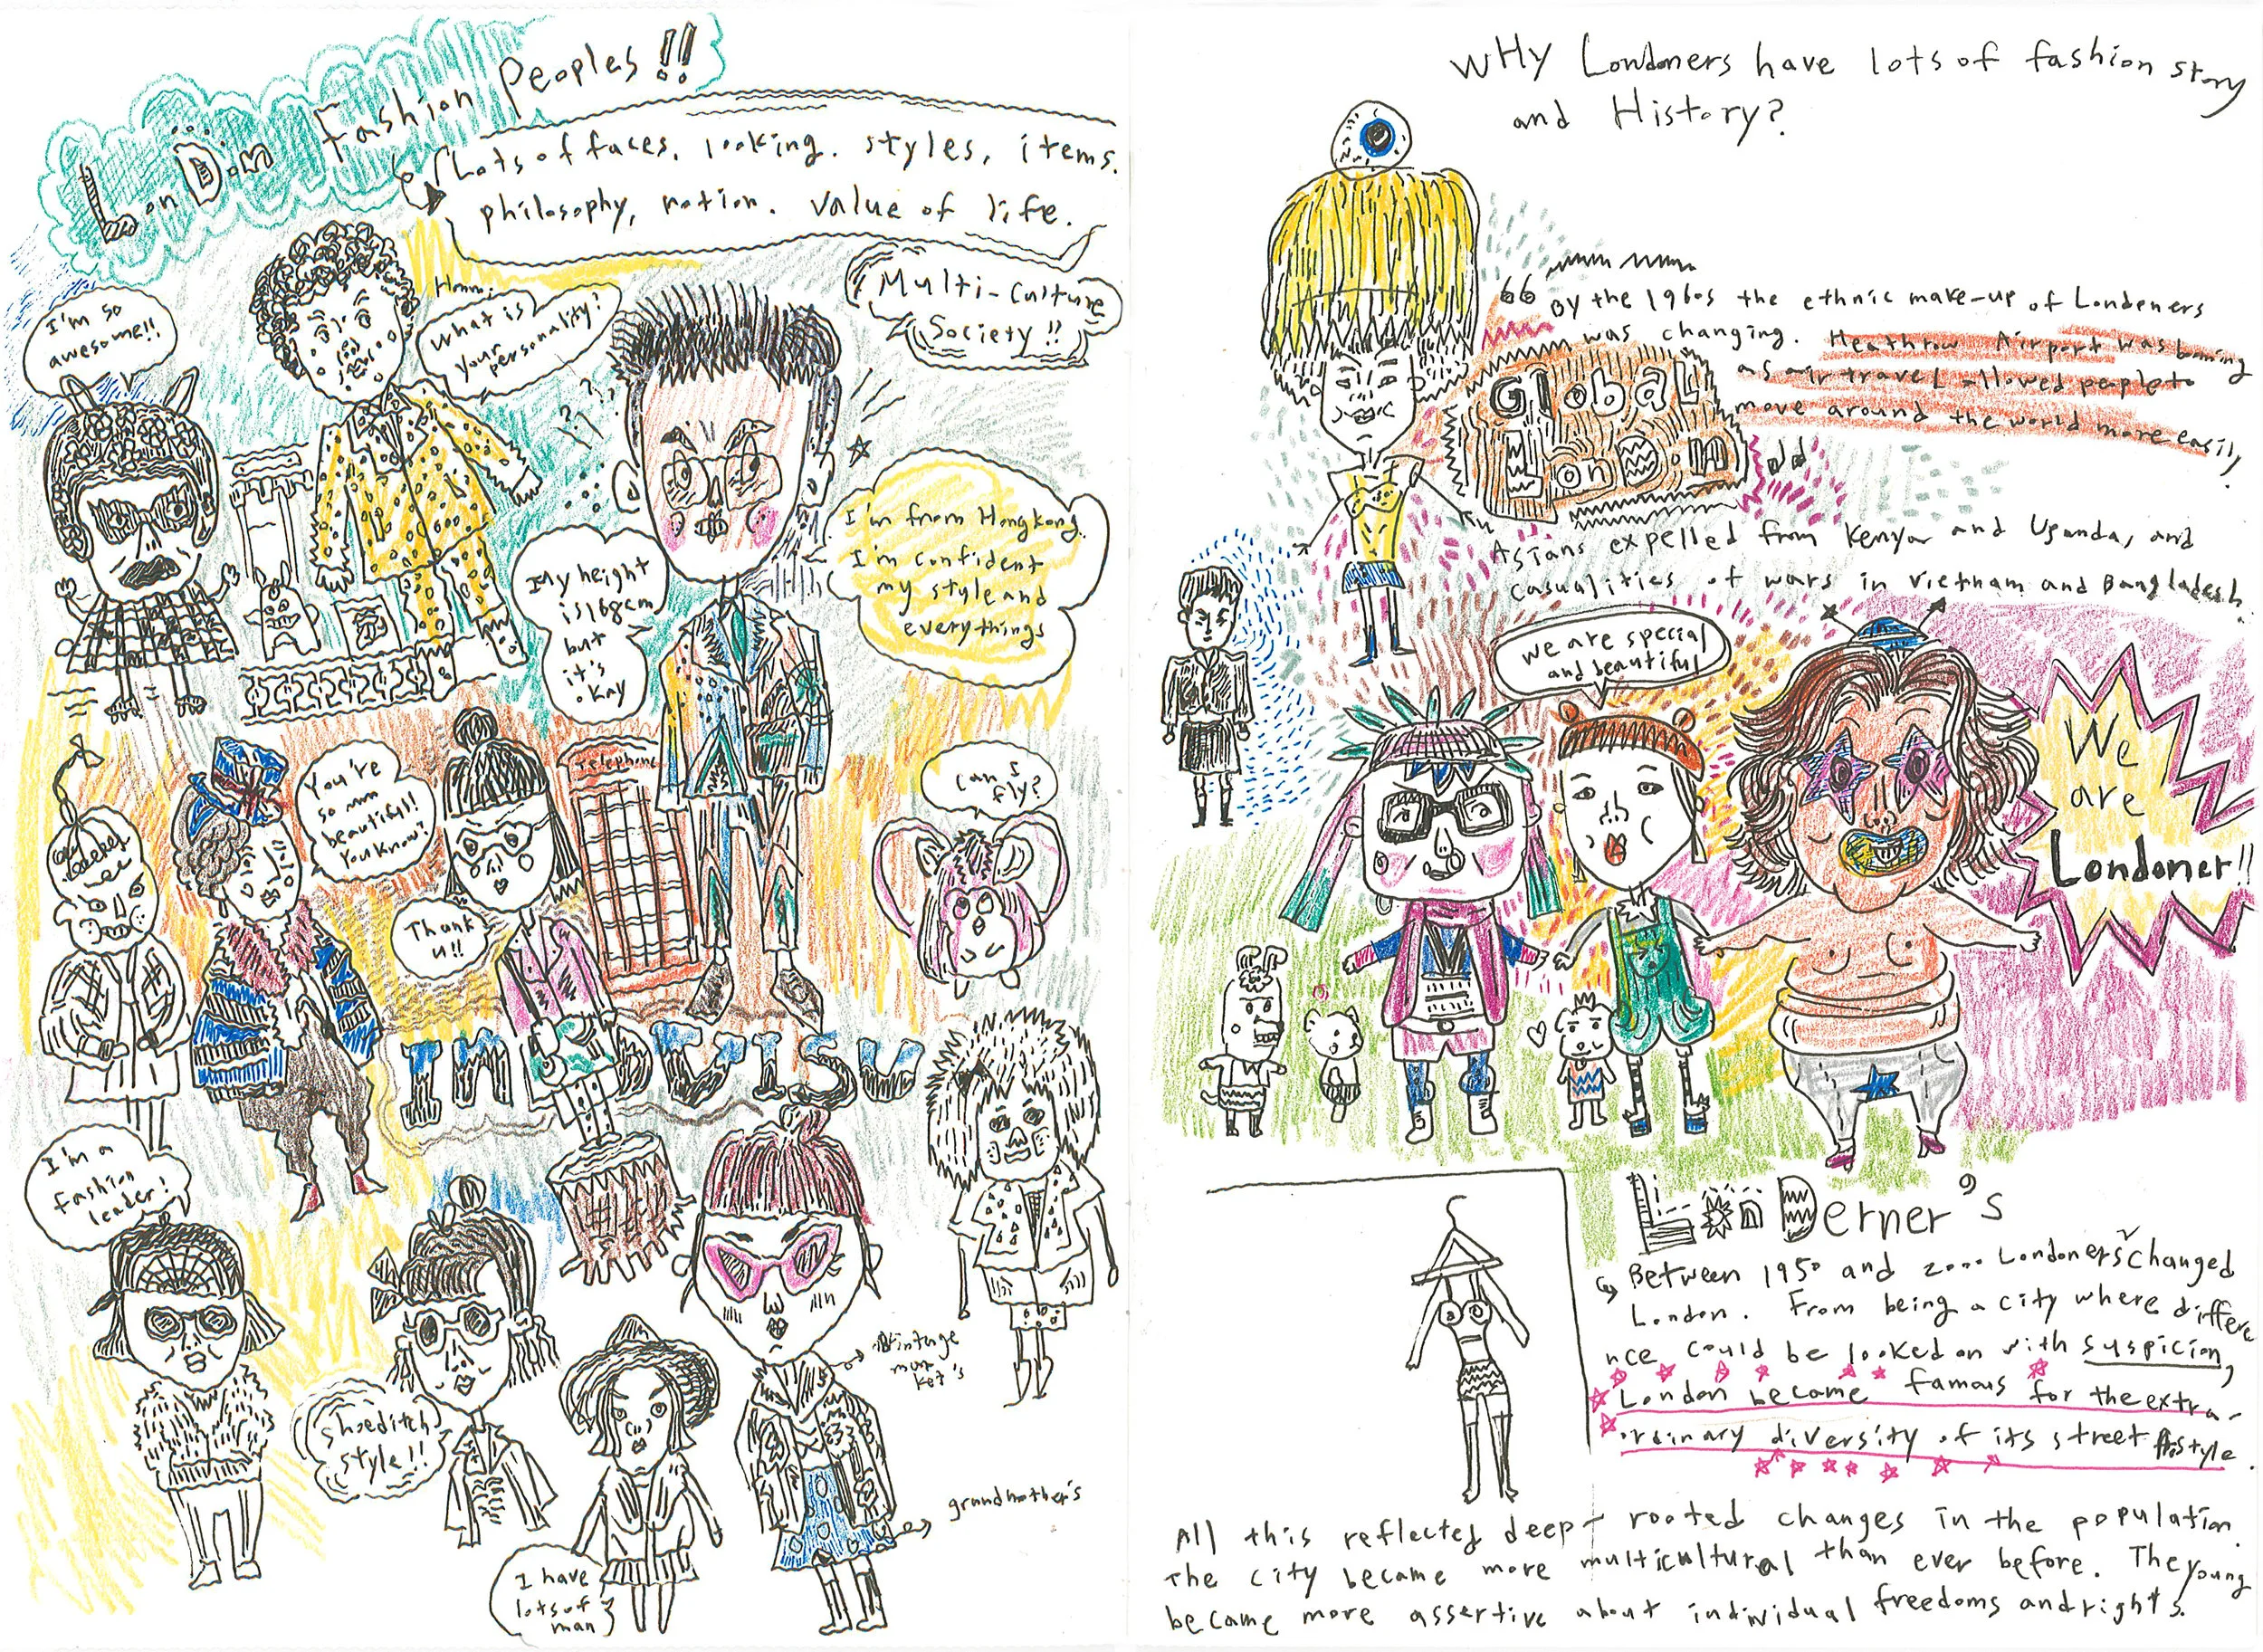 LonDon Fashion Peoples!!
Lots of faces. looking. styles, items.
philosophy, notion. value of life.
Multi-Culture
Society!!
I'm so
awesome!!
Hmm..
What is
your
personality?
My height
is 168cm
but
it's
okay
I'm from Hongkong.
I'm confident
my style and
everythings
You're
so
beautiful!
You know?
Thank
u!!
Telephone
Can I
fly?
I'm a
fashion
leader!
Shoeditch
style!!
I have
lots of
man
vintage
market's
grandmother's
WHy Londoners have lots of fashion story
and History?
“ By the 1960s the ethnic make-up of Londeners
was changing. Heathrow Airport was boming
as air travel allowed people to
move around the world more easily
Global
LonDon
Asians expelled from Kenya and Uganda, and
casualities of wars in Vietnam and Bangladesh.
we are special
and beautiful
We
are
Londoner!!
LonDerner's
Between 1950 and 2000 Londoners changed
London. From being a city where differe
nce could be looked on with suspicion,
London became famous for the extra-
ordinary diversity of its street style.
All this reflected deep-rooted changes in the population.
The city became more multicultural than ever before. The young
became more assertive about individual freedoms and rights.